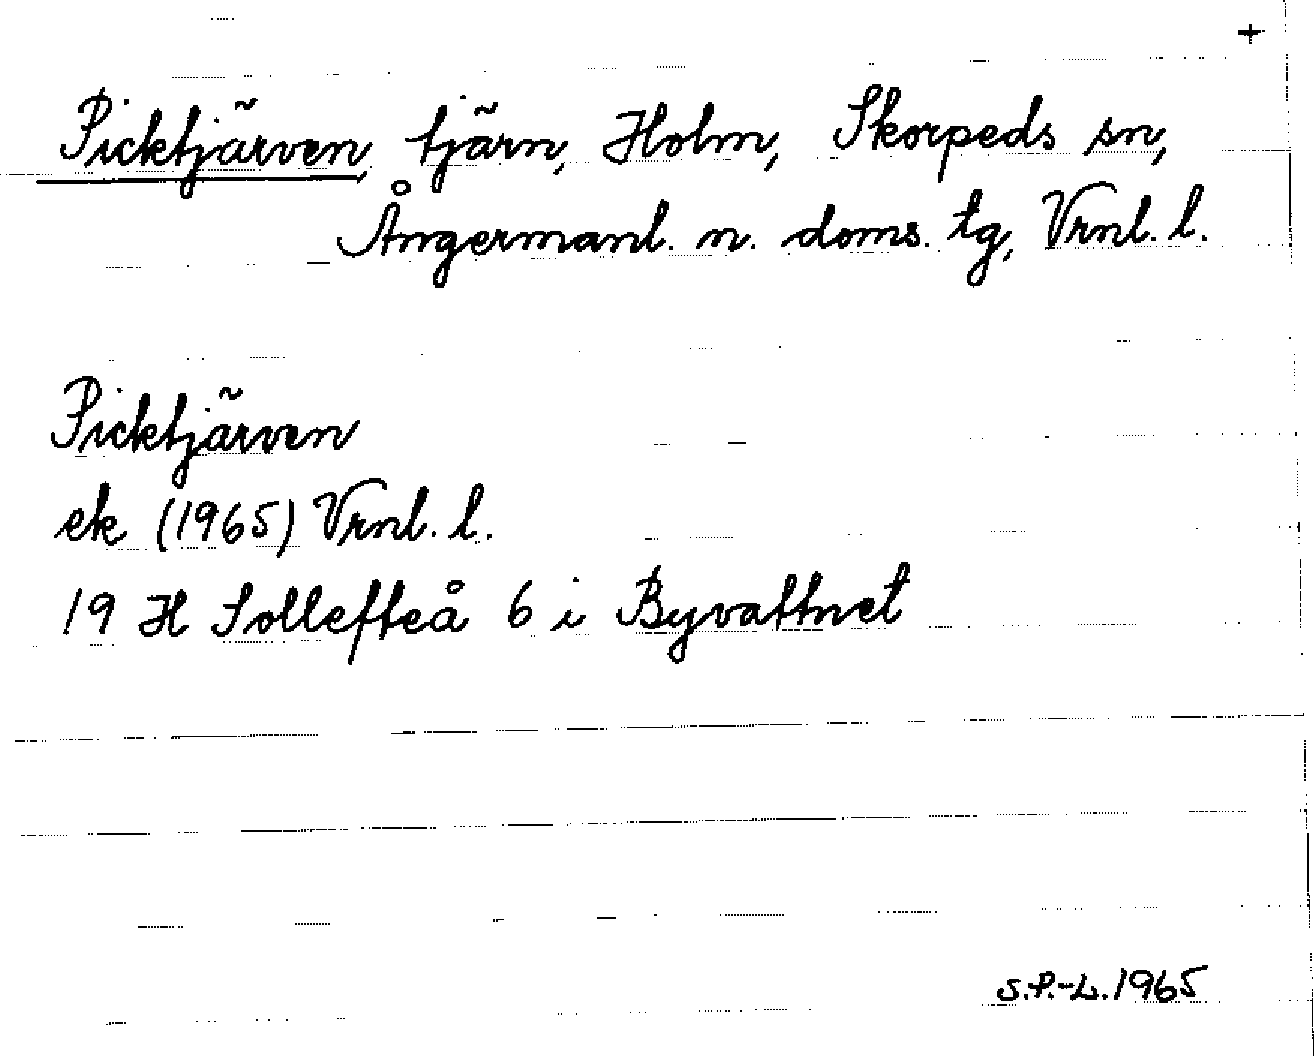 +
Picktjärven, tjärn, Holm, Skorpeds sn,
Ångermanl. n. doms. tg, Vrnl. l.
Picktjärven
ek (1965) Vrnl. l.
19 H Sollefteå 6 i Byvattnet
S.P.-L. 1965